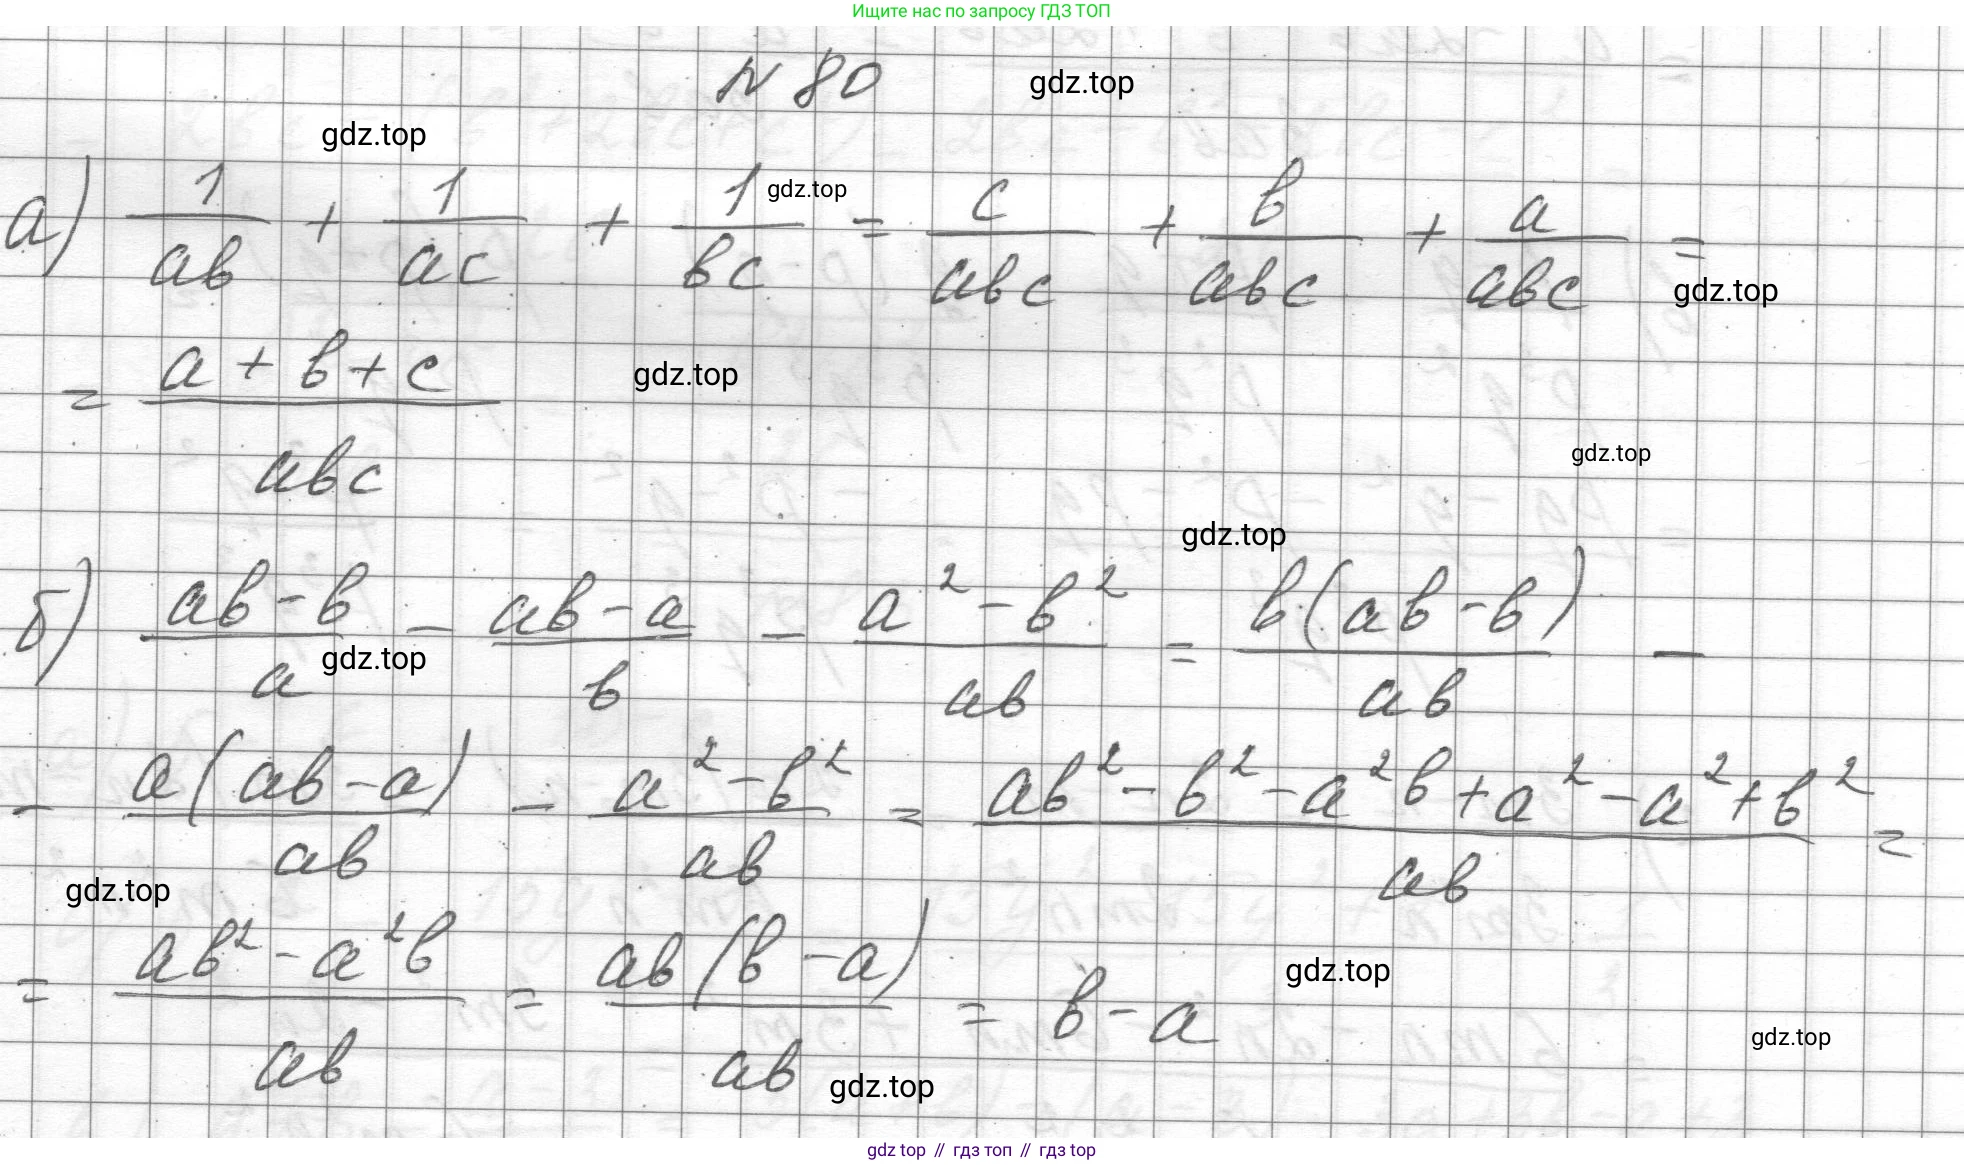 Ищите нас по запросу ГДЗ ТОП
N 80 gdz.top
gdz.top
а) 1/ab + 1/ac + 1/bc = c/abc + b/abc + a/abc =
gdz.top
gdz.top
= (a + b + c)/abc
gdz.top
gdz.top
gdz.top
б) (ab - b)/a - (ab - a)/b - (a² - b²)/ab = b(ab - b)/ab -
gdz.top
- a(ab - a)/ab - (a² - b²)/ab = (ab² - b² - a²b + a² - a² + b²)/ab =
gdz.top
= (ab² - a²b)/ab = ab(b - a)/ab = b - a
gdz.top
gdz.top
gdz.top
gdz top // гдз топ // гдз top